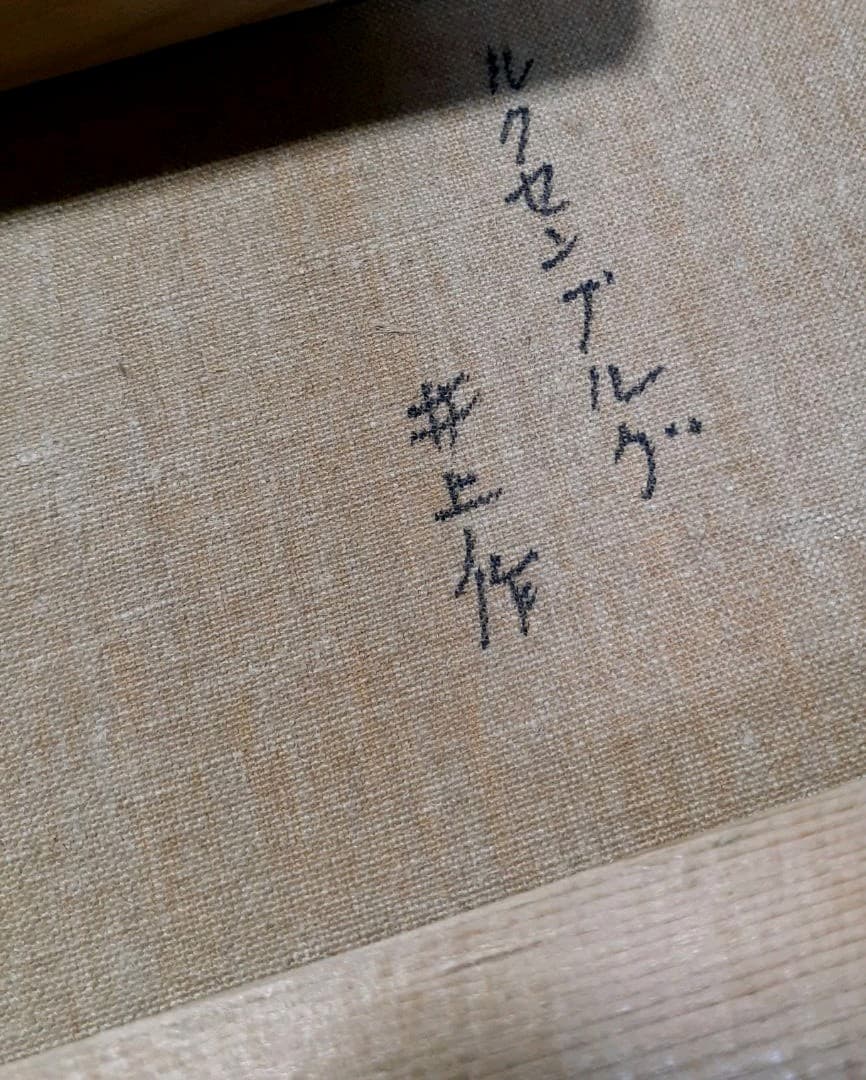 ルクセンブルグ
井上作